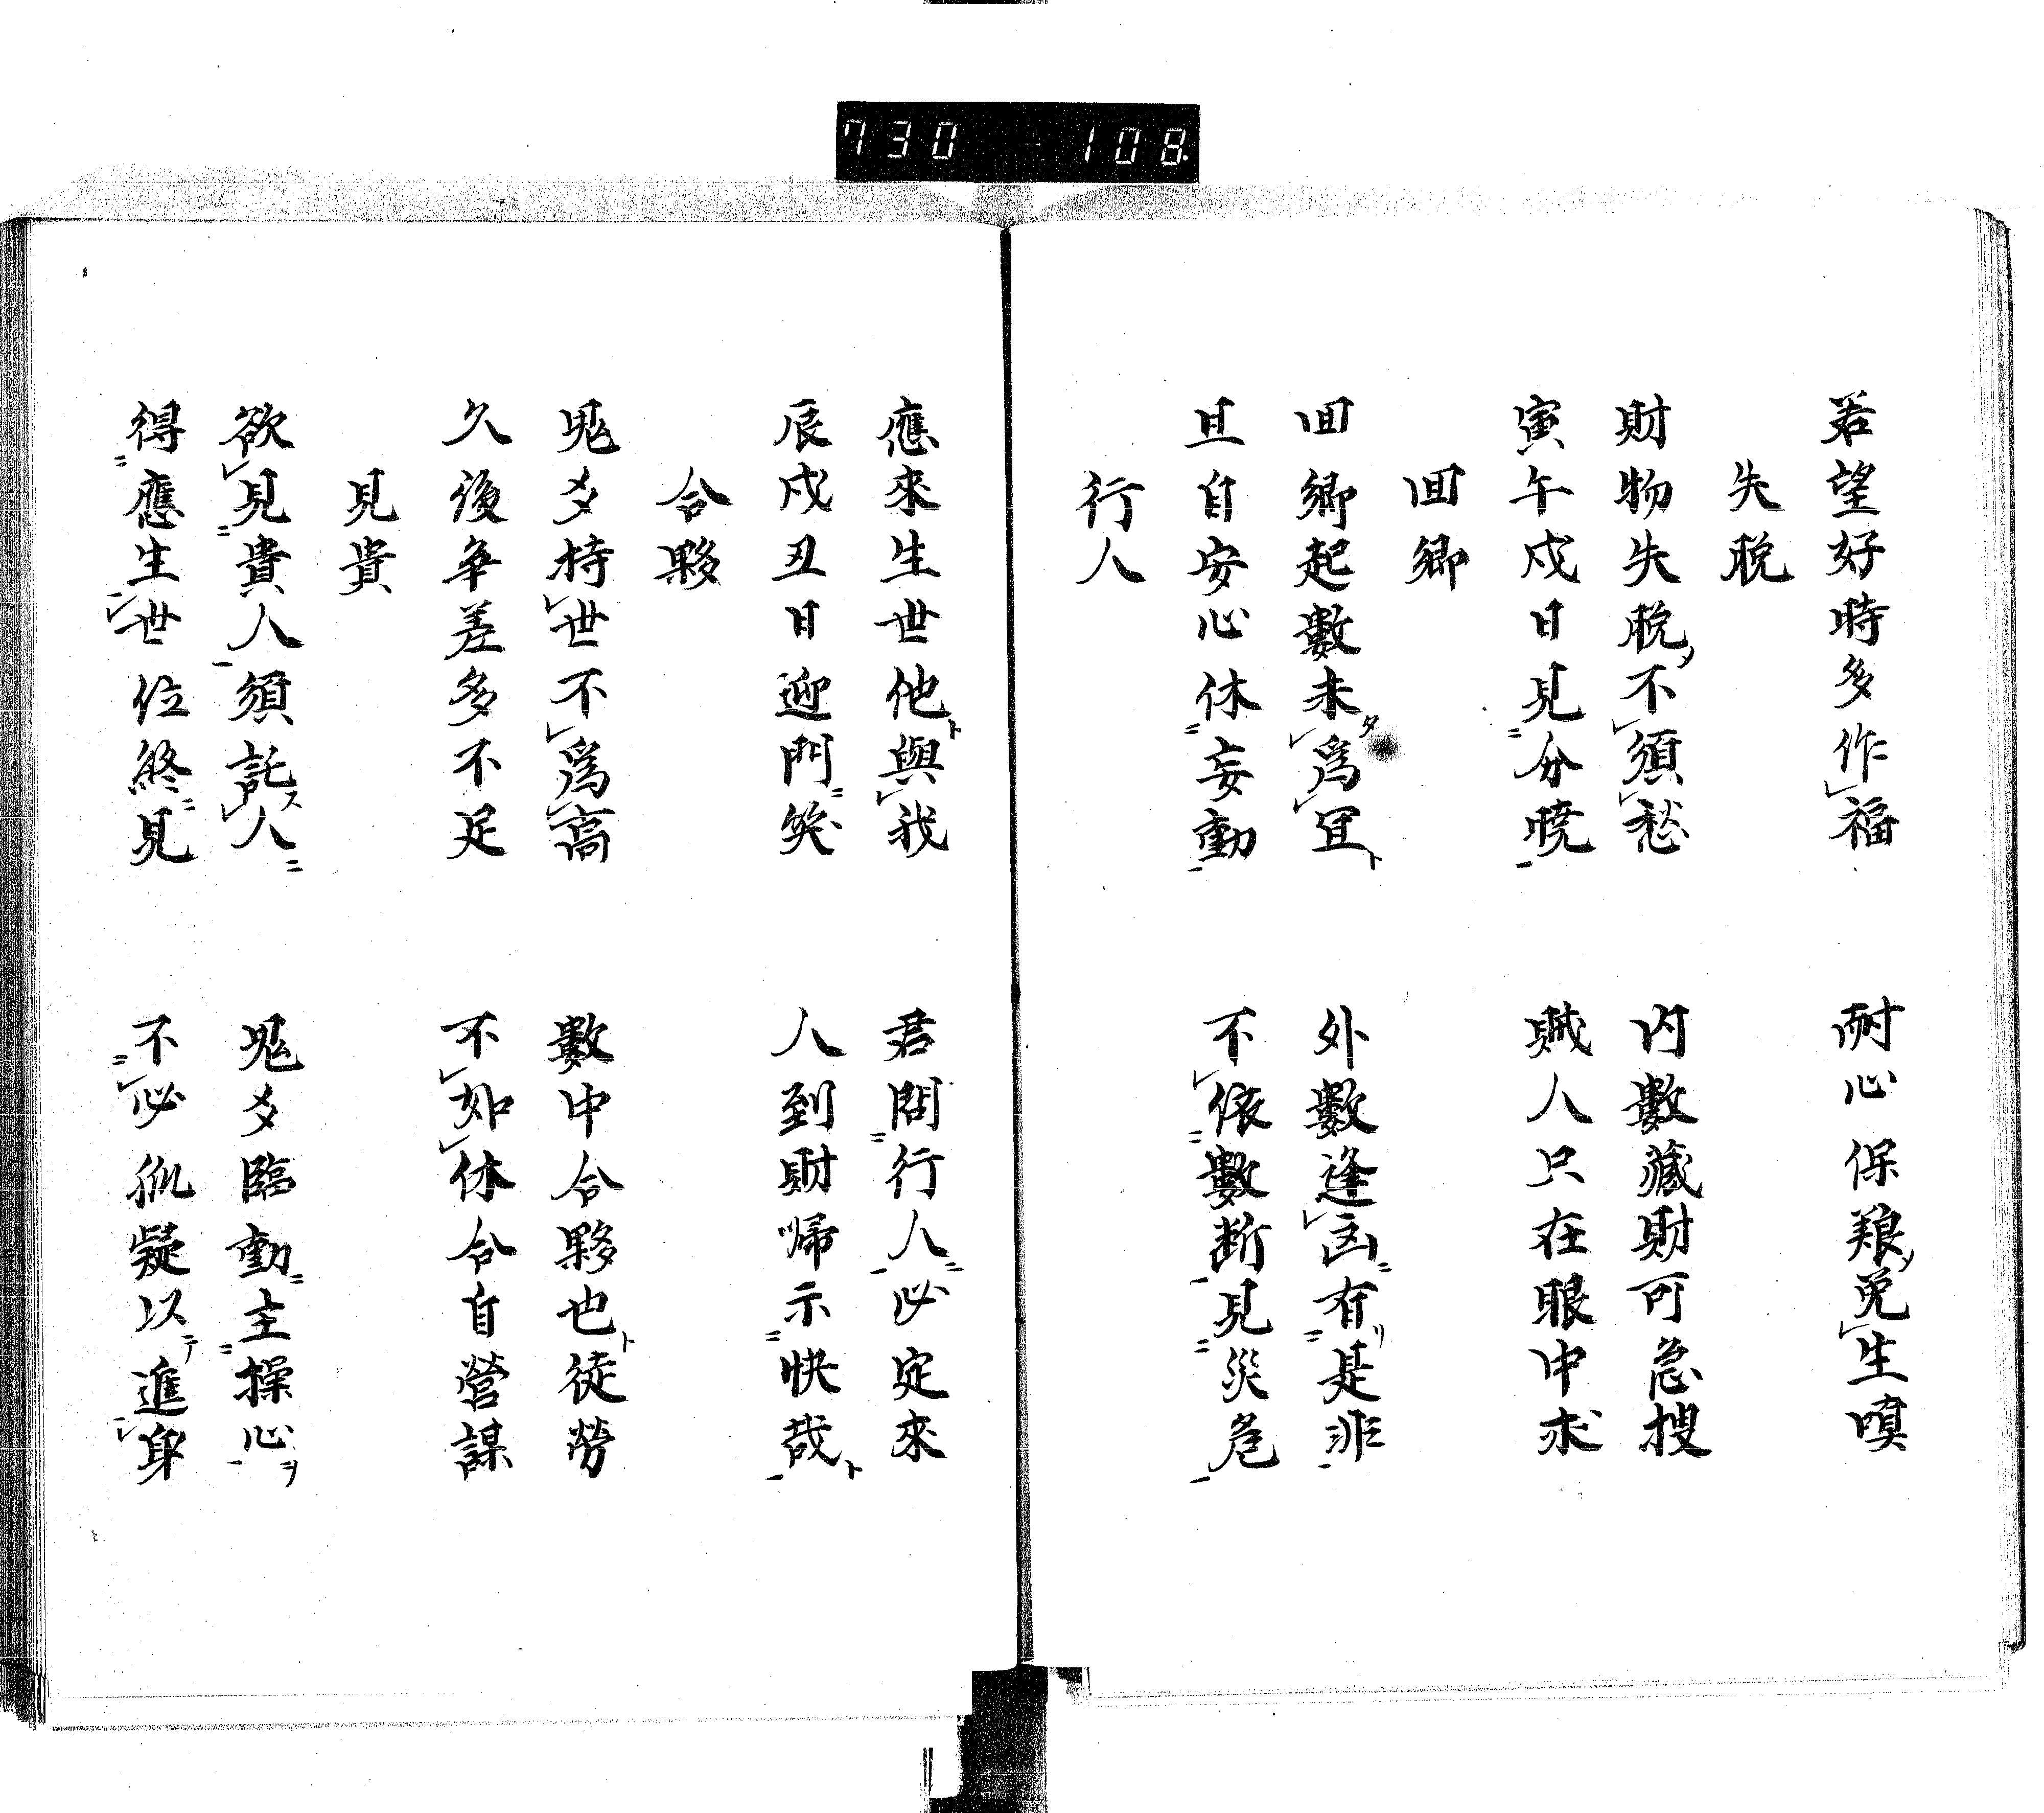 730 - 108
若望好時多作福　耐心保艱免生嗔
失脱
財物失脱不須愁　内數藏財可急搜
寅午戌日見分曉　賊人只在眼中求
回鄉
回鄉起數未爲宜　外數逢凶有是非
且自安心休妄動　不依數断見災危
行人
應來生世他與我　君問行人必定來
辰戌丑日迎門笑　人到財帰示快哉
合夥
鬼爻持世不爲高　數中合夥也徒勞
久後争差多不足　不如休合自營謀
見貴
欲見貴人須託人　鬼爻臨動主操心
得應生世位終見　不必狐疑以進身